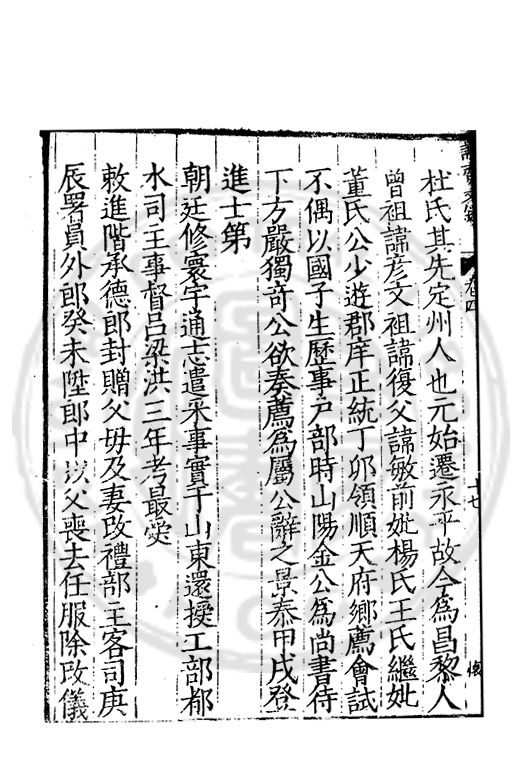 杜氏其先定州人也元始遷永平故今為昌黎人
曾祖諱彦文祖諱復父諱敏前妣楊氏王氏繼妣
董氏公少遊郡庠正統丁卯領順天府鄉薦會試
不偶以國子生歷事户部時山陽金公為尚書待
下方嚴獨竒公欲奏薦為屬公辭之景泰甲戌登
進士第
朝廷修寰宇通志遣采事實于山東還授工部都
水司主事督吕梁洪三年考最癸
敕進階承德郎封贈父母及妻改禮部主客司庚
辰署員外郎癸未陞郎中以父喪去任服除改儀
卷四
十七